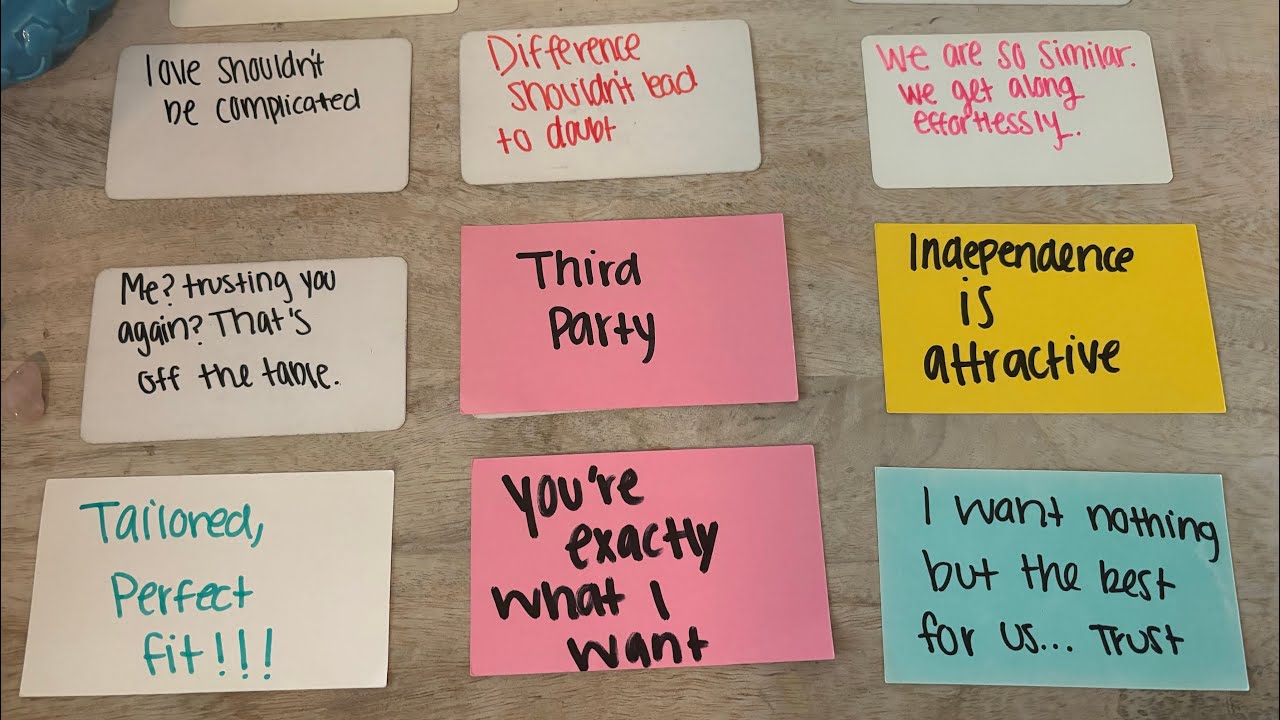 love shouldn't
be complicated
Difference
shouldn't lead
to doubt
We are so similar.
we get along
effortlessly.
Me? trusting you
again? That's
off the table.
Third
Party
Independence
is
attractive
Tailored,
Perfect
fit!!!
You're
exactly
what I
want
I want nothing
but the best
for us... Trust